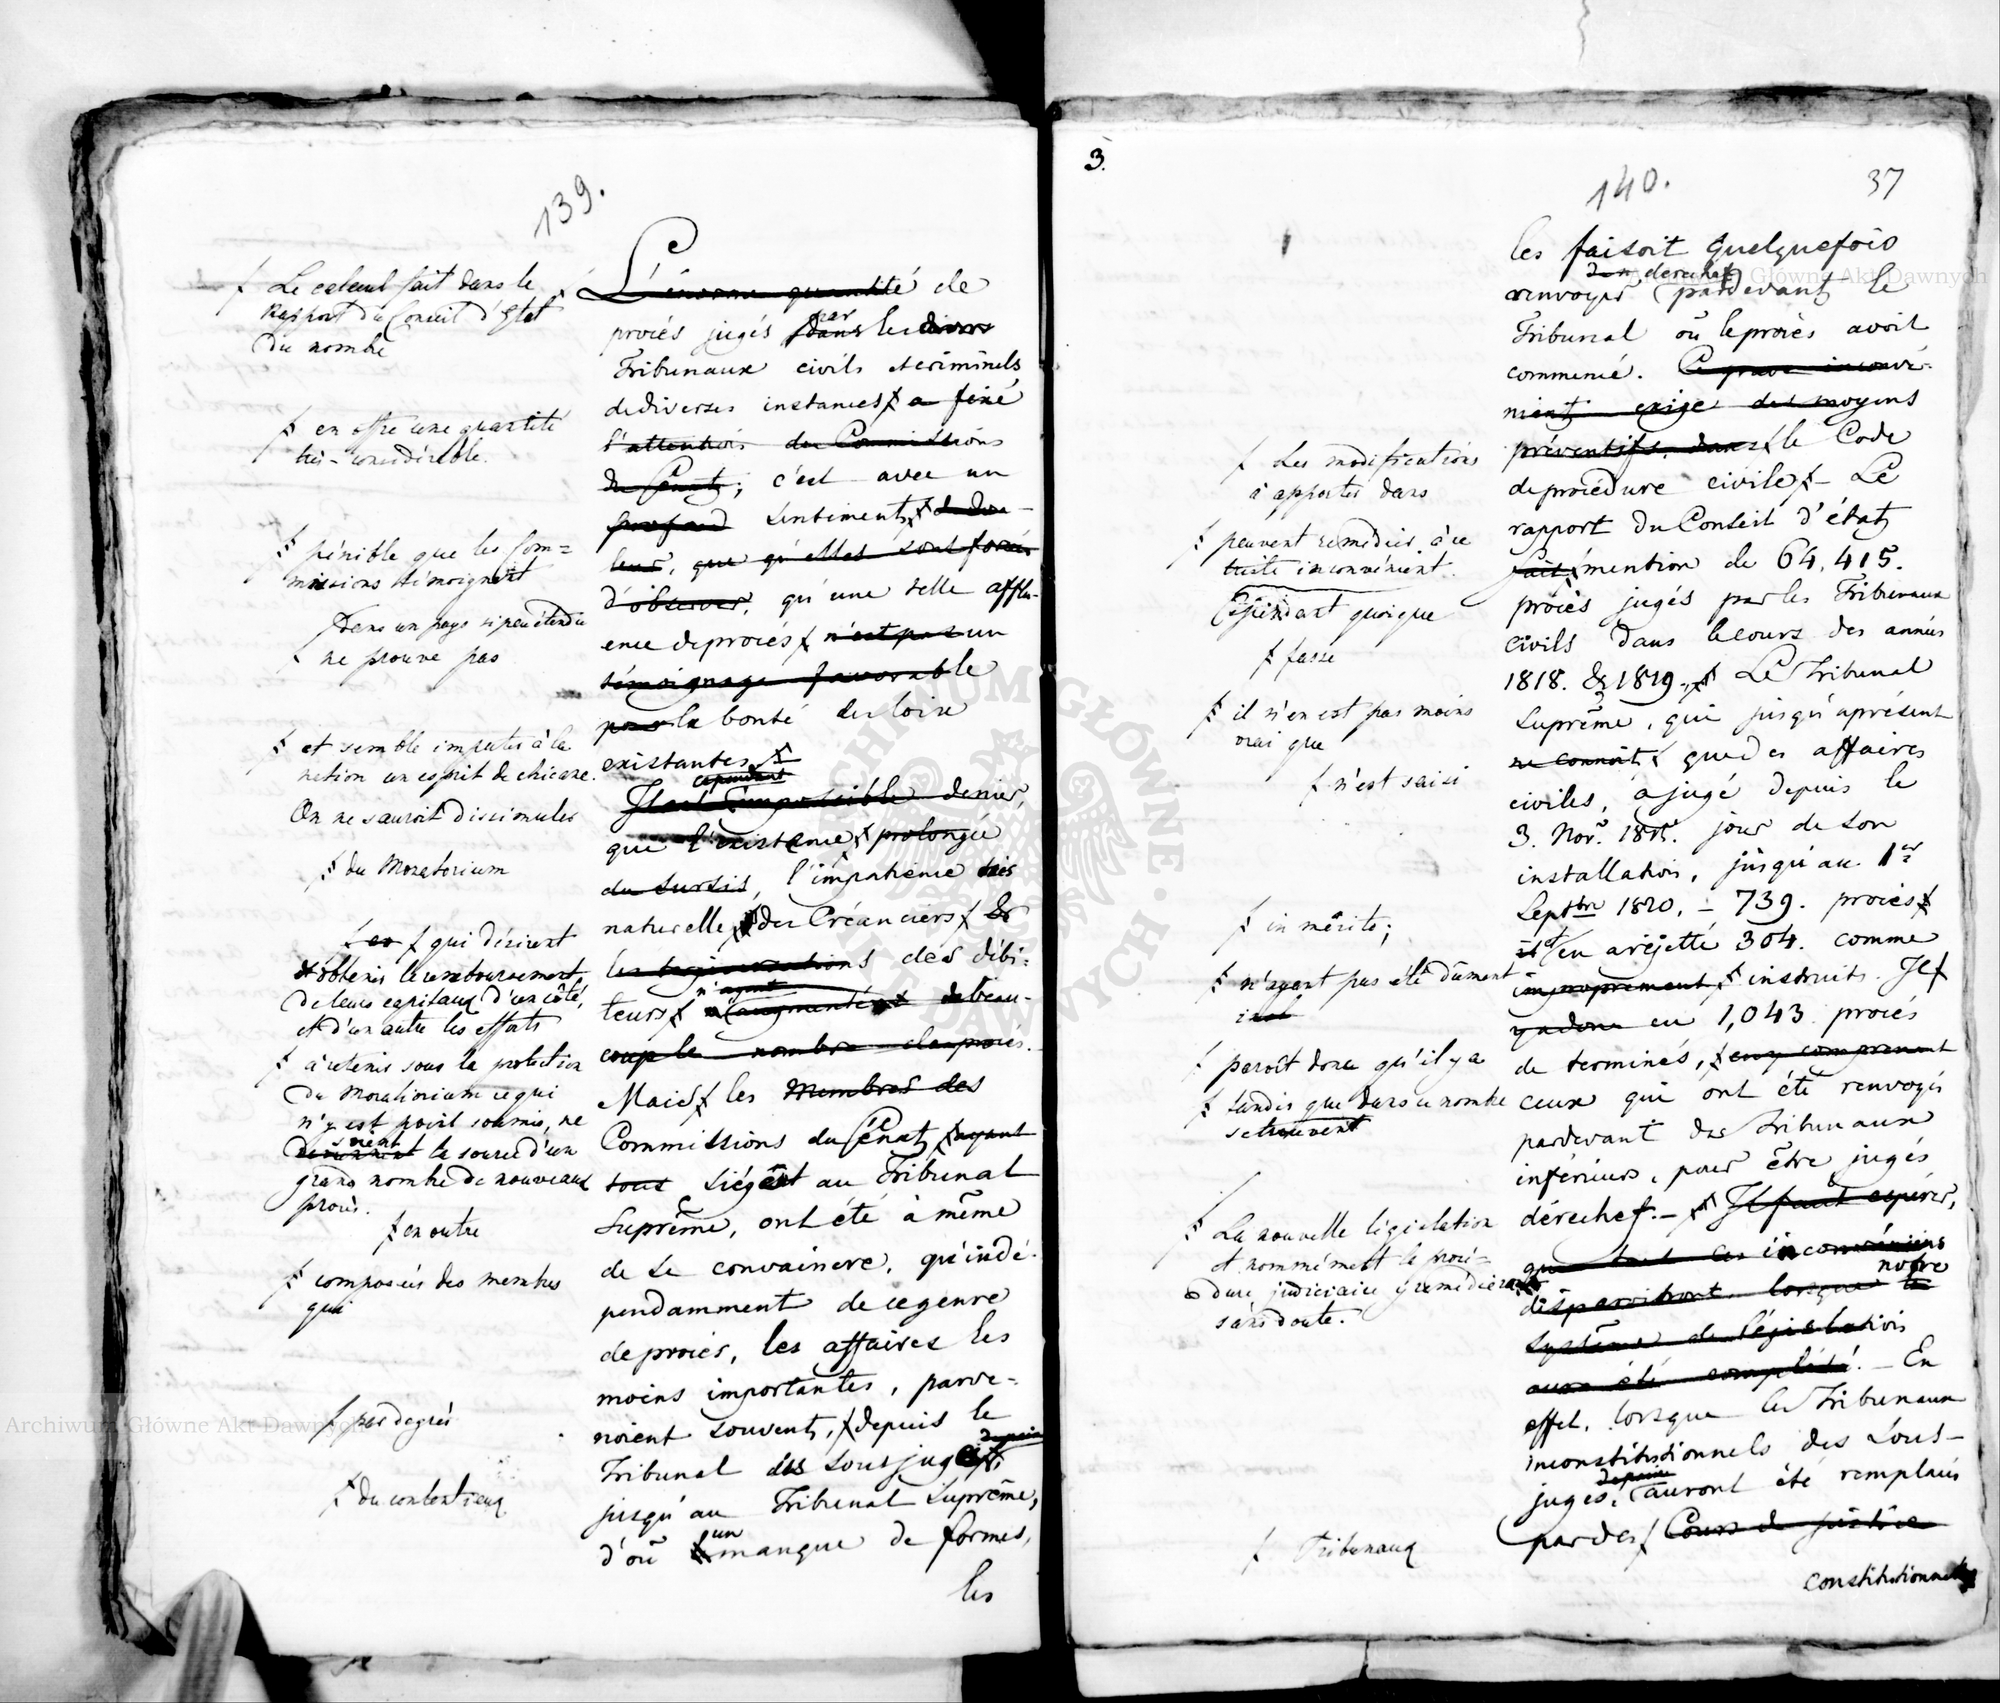 139.
ƒ Le calcul fait dans le
Rapport du Conseil d'Etat
du nombre
ƒ en offre une quantité
très-considérable.
ƒ pénible que les Com=
missions témoignent
Dans un pays si peu étendu
ƒ ne prouve pas
ƒ et semble imputer à la
nation un esprit de chicane.
On ne sauroit dissimuler
ƒ du Moratorium
ƒ qui désirent
obtenir le remboursement
de leurs capitaux d'un côté,
et d'un autre les efforts
ƒ à retenir sous la protection
du Moratorium ce qui
n'y est point soumis, ne
soient
deviennent la source d'un
grand nombre de nouveaux
procès.
ƒ en outre
ƒ composées des membres
qui
ƒ par degrés
ƒ du contentieux
L'énorme quantité de
par
procès jugés dans les divers
Tribunaux civils et criminels
de diverses instances ƒ a fixé
l'attention des Commissions
du Sénat; c'est avec un
profond sentiment ƒ de dou-
leur, que qu'elles sont forcées
d'observer, qu'une telle afflu-
ence de procès ƒ n'est pas un
témoignage favorable
pour la bonté des loix
existantes ƒ
cependant
Il est impossible de nier,
que l'existence ƒ prolongée
du sursis, l'impatience très
naturelle ƒ des Créanciers ƒ &
les tergiversations des débi=
n'ayent
teurs ƒ augmenté de beau-
coup le nombre des procès.
Mais ƒ les Membres des
Commissions du Sénat ƒ ayant
tous siégé au Tribunal
Suprême, ont été à même
de se convaincre, qu'indé-
pendamment de ce genre
de procès, les affaires les
moins importantes, parve-
noient souvent, ƒ depuis le
depuis
Tribunal des sousjuges
jusqu'au Tribunal Suprême,
un
d'où manque de formes,
les
3.
140.
37
ƒ Les modifications
à apporter dans
ƒ peuvent remédier à ce
triste inconvénient.
Cependant quoique
ƒ fasse
ƒ il n'en est pas moins
vrai que
ƒ n'est saisi
ƒ in mérito;
ƒ n'ayant pas été dûment
ƒ paroît donc qu'il y a
ƒ tandis que dans ce nombre
se trouvent
ƒ La nouvelle législation
et nommément la procé=
dure judiciaire y remédiera
sans doute.
ƒ Tribunaux
les faisoit quelquefois
derechef
renvoyer pardevant le
Tribunal où le procès avoit
commencé. Ce grave inconvé-
nient exige des moyens
préventifs dans ƒ le Code
de procédure civile ƒ – Le
rapport du Conseil d'état
fait mention de 64,415.
procès jugés par les Tribunaux
civils dans le cours des années
1818. & 1819. ƒ Le Tribunal
Suprême, qui jusqu'aprésent
ne connoit ƒ que des affaires
civiles, a jugé depuis le
3. Nov. 1815. jour de son
installation, jusqu'au 1er
Septbre 1820. – 739. procès ƒ
et en a rejetté 304. comme
improprement ƒ instruits. Il ƒ
y a donc eu 1,043 procès
de terminés, ƒ en y comprenant
ceux qui ont été renvoyés
pardevant des Tribunaux
inférieurs, pour être jugés
dérechef. – ƒ Il faut espérer,
que tous ces inconvéniens
notre
disparoitront lorsque le
système de législation
aura été complété. – En
effet, lorsque les Tribunaux
inconstitutionnels des Sous-
juges, auront été remplacés
par des ƒ Cours de justice
constitutionnels
Archiwum Główne Akt Dawnych
Archiwum Główne Akt Dawnych
ARCHIWUM GŁÓWNE AKT DAWNYCH